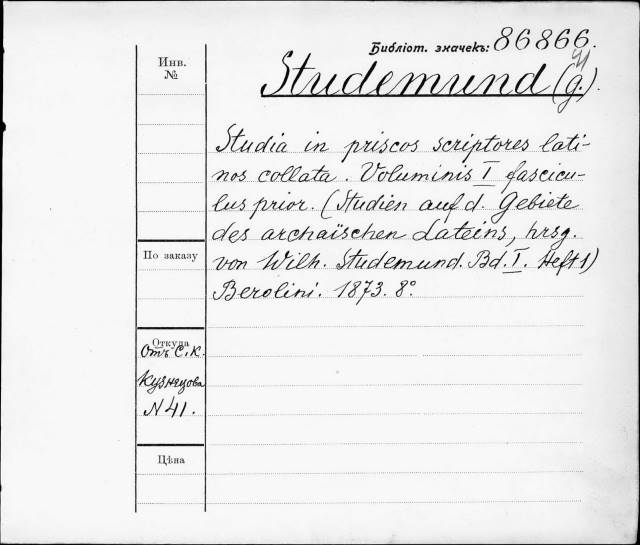 Библіот. значекъ: 86866.
Инв.
№
Studemund (G.).
Studia in priscos scriptores lati-
nos collata. Voluminis I fascicu-
lus prior. (Studien auf d. Gebiete
des archaïschen Lateins, hrsg.
von Wilh. Studemund. Bd. I. Heft 1)
Berolini. 1873. 8°.
По заказу
Откуда
Отъ С. К.
Кузнецова
N 41.
Цѣна